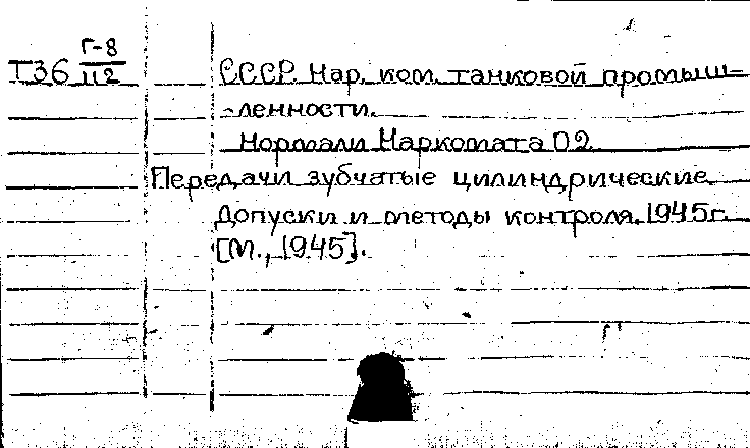 Т36 Г-8/112 СССР. Нар. ком. танковой промыш-
ленности.
Нормали Наркомата 02
Передачи зубчатые цилиндрические.
Допуски и методы контроля. 1945г.
[М., 1945].